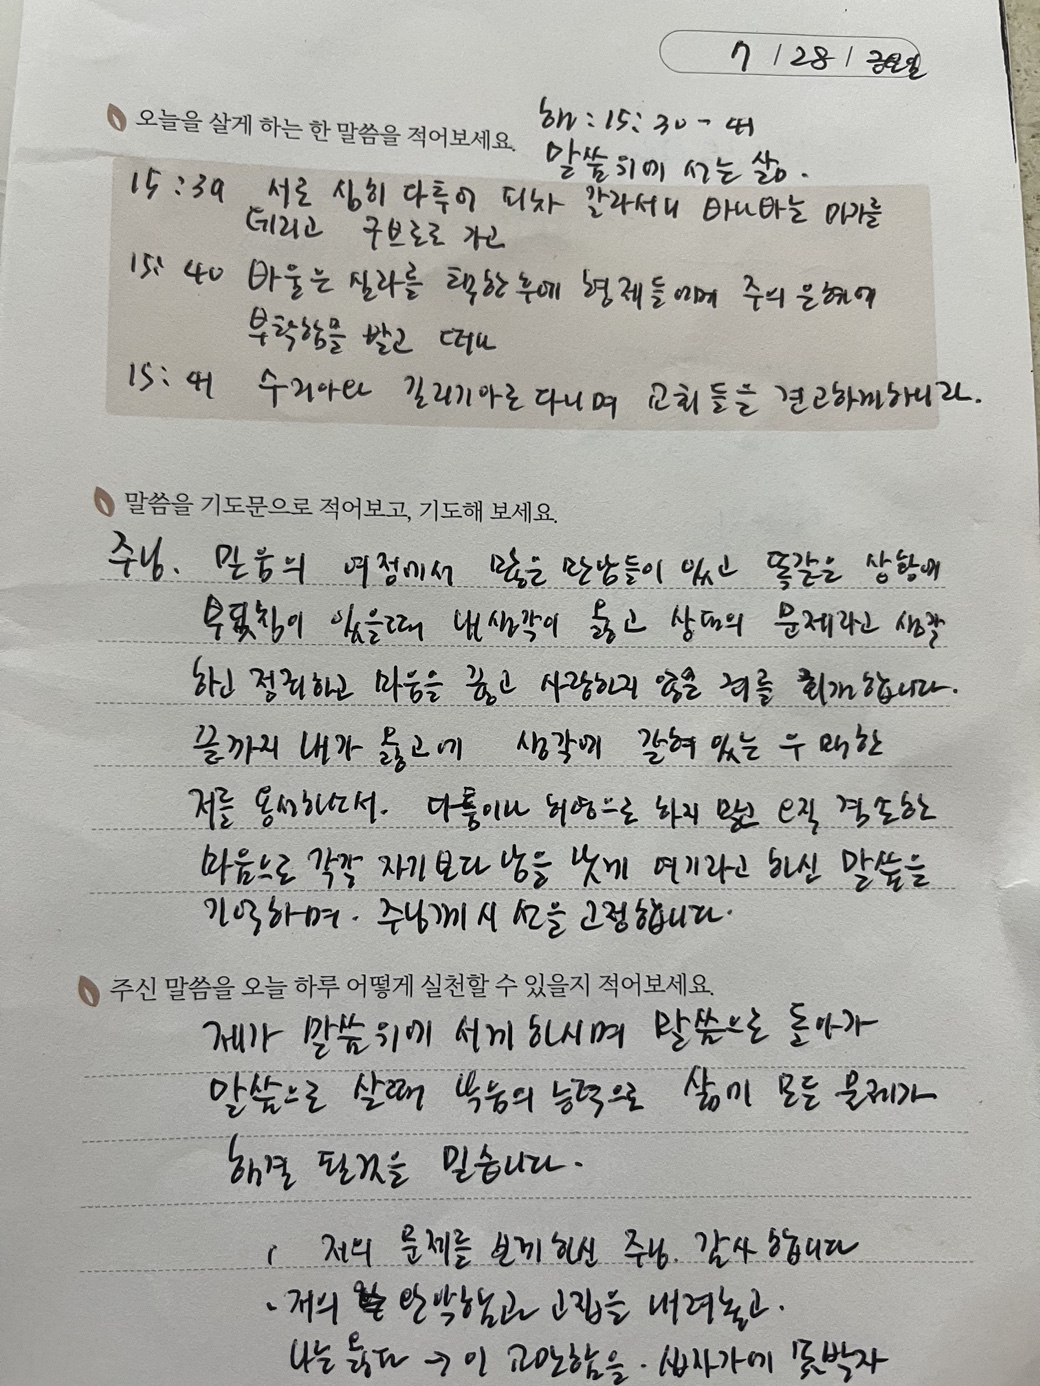 7 / 28 / 금요일
오늘을 살게 하는 한 말씀을 적어보세요.
행 : 15 : 30 - 41
말씀위에 서는 삶.
15 : 39 서로 심히 다투어 피차 갈라서니 바나바는 마가를
데리고 구브로로 가고
15: 40 바울은 실라를 택한후에 형제들에게 주의 은혜에
부탁함을 받고 떠나
15: 41 수리아와 길리기아로 다니며 교회들을 견고하게하니라.
말씀을 기도문으로 적어보고, 기도해 보세요.
주님. 믿음의 여정에서 많은 만남들이 있고 똑같은 상황에
부딪침이 있을때 내생각이 옳고 상대의 문제라고 생각
하신 정죄하고 마음을 품고 사랑하지 않은 저를 회개합니다.
끝까지 내가 옳고에 생각에 갇혀 있는 우매한
저를 용서하소서. 다툼이나 허영으로 하지 말고 오직 겸손한
마음으로 각각 자기보다 남을 낫게 여기라고 하신 말씀을
기억하며. 주님께 시선을 고정합니다.
주신 말씀을 오늘 하루 어떻게 실천할 수 있을지 적어보세요.
제가 말씀위에 서게 하시며 말씀으로 돌아가
말씀으로 살때 복음의 능력으로 삶의 모든 문제가
해결 될것을 믿습니다.
저의 문제를 보게하신 주님. 감사합니다
저의 완박함과 고집을 내려놓고.
나는 옳다 → 이 교만함을. 십자가에 못박자